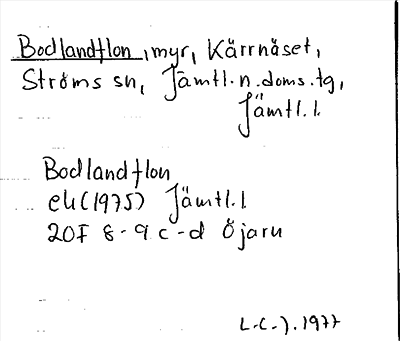 Bodlandflon, myr, Kärrnäset,
Ströms sn, Jämtl. n. doms. tg,
Jämtl. l.
Bodlandflon
ek (1975) Jämtl. l
20F 8-9 c-d Öjarn
L-C-J. 1977